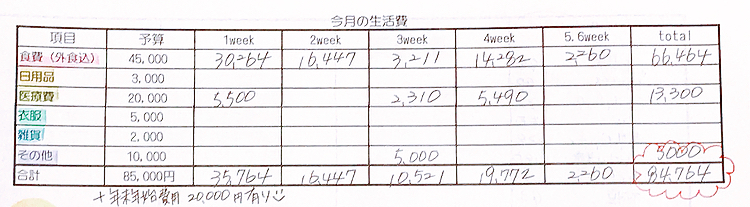 今月の生活費
項目 予算 1week 2week 3week 4week 5.6week total
食費（外食込） 45,000 30,264 16,447 3,211 14,282 2,260 66,464
日用品 3,000
医療費 20,000 5,500 2,310 5,490 13,300
衣服 5,000
雑貨 2,000
その他 10,000 5,000 5000
合計 85,000円 35,764 16,447 10,521 19,772 2,260 84,764
+年末年始費用 20,000円有り